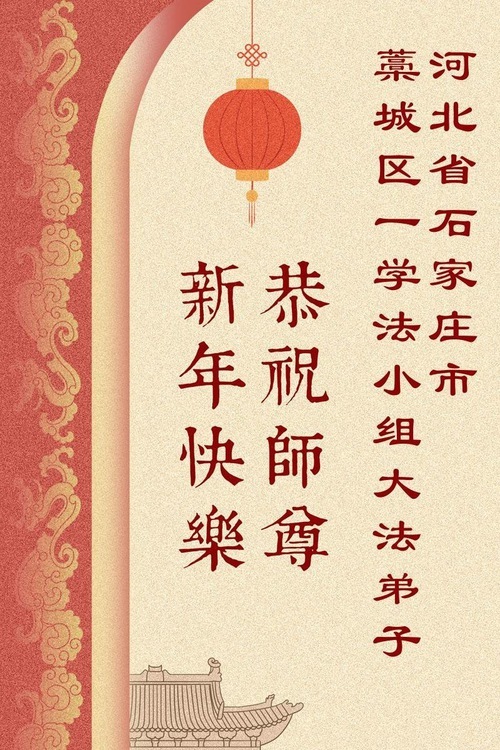 河北省石家庄市
藁城区一学法小组大法弟子
恭祝師尊
新年快樂